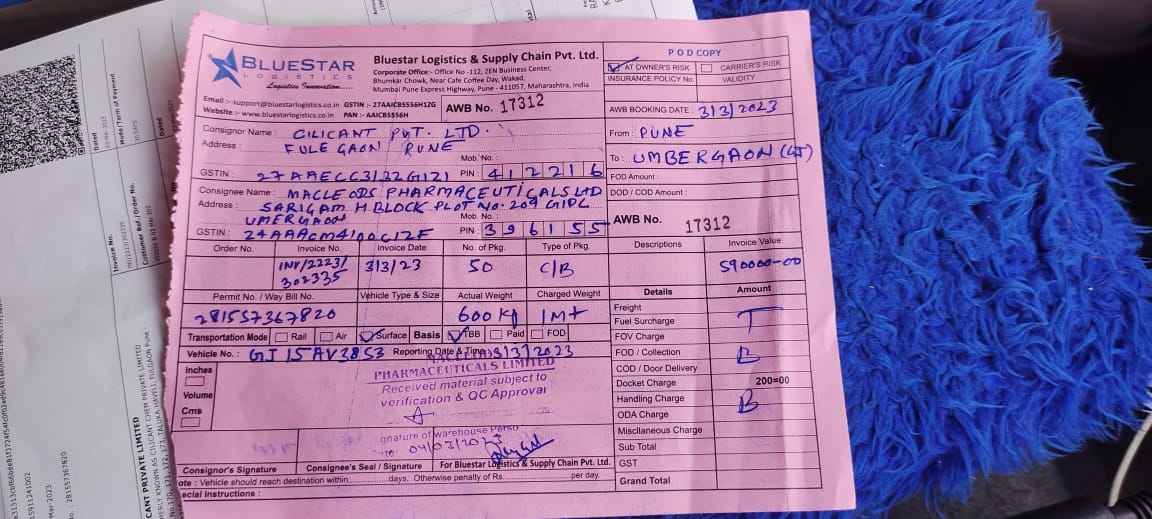 BLUESTAR
LOGISTICS
Logistics Innovation.....
Bluestar Logistics & Supply Chain Pvt. Ltd.
Corporate Office:- Office No -112, ZEN Business Center,
Bhumkar Chowk, Near Cafe Coffee Day, Wakad,
Mumbai Pune Express Highway, Pune - 411057, Maharashtra, India
Email :- support@bluestarlogistics.co.in GSTIN :- 27AAICB5556H1ZG
Website :- www.bluestarlogistics.co.in PAN :- AAICB5556H
AWB No. 17312
POD COPY
AT OWNER'S RISK CARRIER'S RISK
INSURANCE POLICY No. VALIDITY
AWB BOOKING DATE : 3/3/2023
From : PUNE
To : UMBERGAON (GJ)
FOD Amount :
DOD / COD Amount :
AWB No. 17312
Consignor Name : CILICANT PVT. LTD.
Address : FULEGAON PUNE
Mob. No. :
GSTIN : 27AAECC3122G1Z1 PIN : 412216
Consignee Name : MACLEODS PHARMACEUTICALS LTD
Address : SARIGAM H BLOCK PLOT No. 209 GIDC
UMERGAON
Mob. No. :
GSTIN : 24AAACM4100C1ZF PIN : 396155
Order No. Invoice No. Invoice Date No. of Pkg. Type of Pkg. Descriptions Invoice Value
INV/2223/
302335 3/3/23 50 C/B 590000-00
Permit No. / Way Bill No. Vehicle Type & Size Actual Weight Charged Weight
281557367820 600 Kg 1Mt
Transportation Mode Rail Air Surface Basis TBB Paid FOD
Vehicle No. : GJ15AV3853 Reporting Date & Time : 3/3/2023
Inches
Volume
Cms
PHARMACEUTICALS LIMITED
Received material subject to
verification & QC Approval
gnature of warehouse Perso
04/03/2023
Consignor's Signature Consignee's Seal / Signature For Bluestar Logistics & Supply Chain Pvt. Ltd.
ote : Vehicle should reach destination within...............days. Otherwise penalty of Rs...............per day.
ecial Instructions :
Details Amount
Freight
Fuel Surcharge T
FOV Charge
FOD / Collection B
COD / Door Delivery
Docket Charge 200=00
Handling Charge B
ODA Charge
Miscllaneous Charge
Sub Total
GST
Grand Total
Invoice No.
Dated
Mode/Term of Payment
Customer Ref./ Order No.
Dated
CANT PRIVATE LIMITED
15911241002
Mar-2023
No. : 281557367820